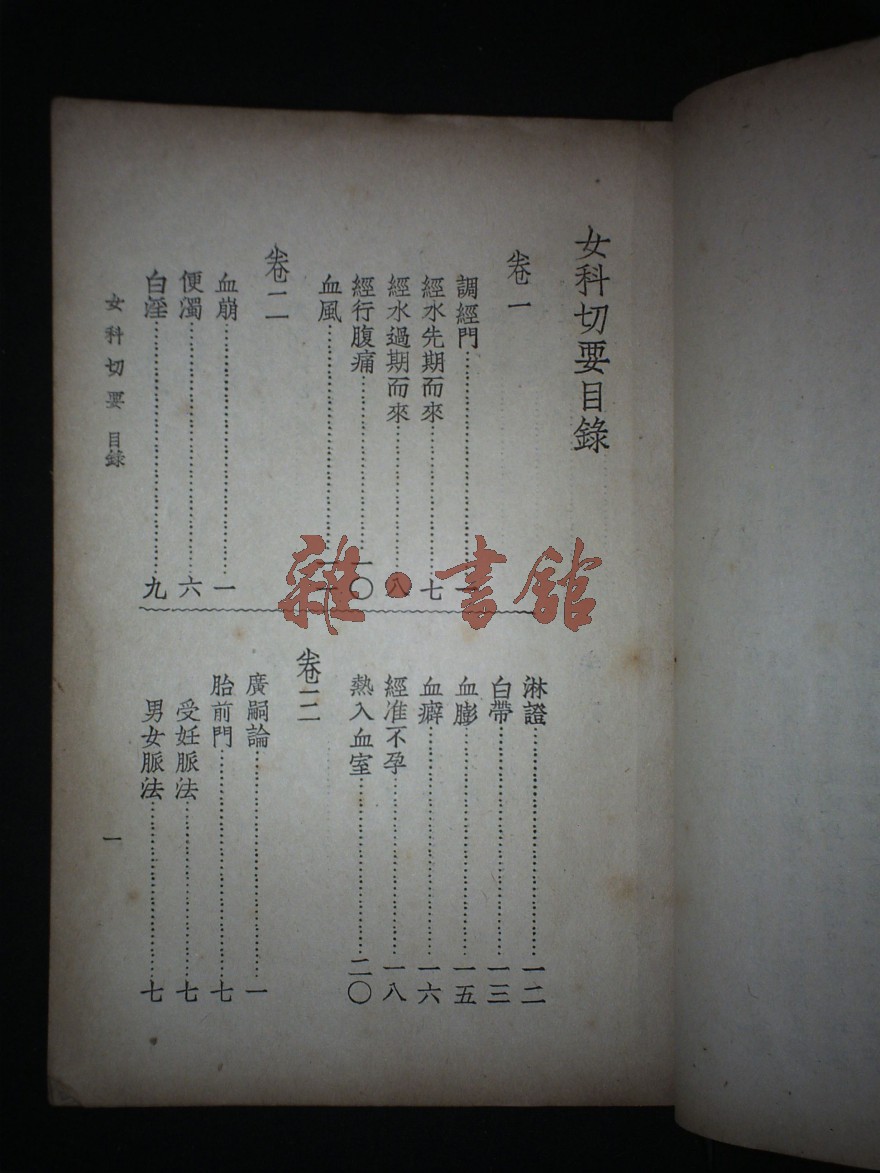 女科切要目錄
卷一
調經門……一
經水先期而來……七
經水過期而來……八
經行腹痛……一〇
血風……一一
卷二
血崩……一
便濁……六
白淫……九
淋證……一二
白帶……一三
血膨……一五
血癖……一六
經准不孕……一八
熱入血室……二〇
卷三
廣嗣論……一
胎前門……七
受妊脈法……七
男女脈法……七
女科切要 目錄
一
雜·書館